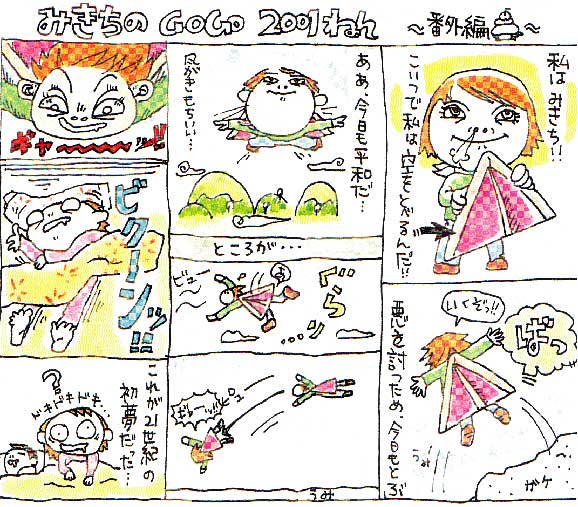 みきちの GOGO 2001ねん
~番外編~
私はみきち!!
こいつで私は空をとべるんだ!!
いくぞっ!!
ばっ
悪を討つため、今日もとぶ
うみ
ガケ
ああ、今日も平和だ…
風がきもちいい…
ところが・・・
ビュー
ぐらっ
…り
うみ
ギャーーーッ!!
ビクーンッ!!
?
ドキドキドキ…
これが21世紀の
初夢だった…